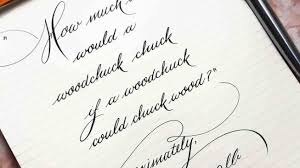 "How much
would a
woodchuck chuck
if a woodchuck
could chuck wood?"